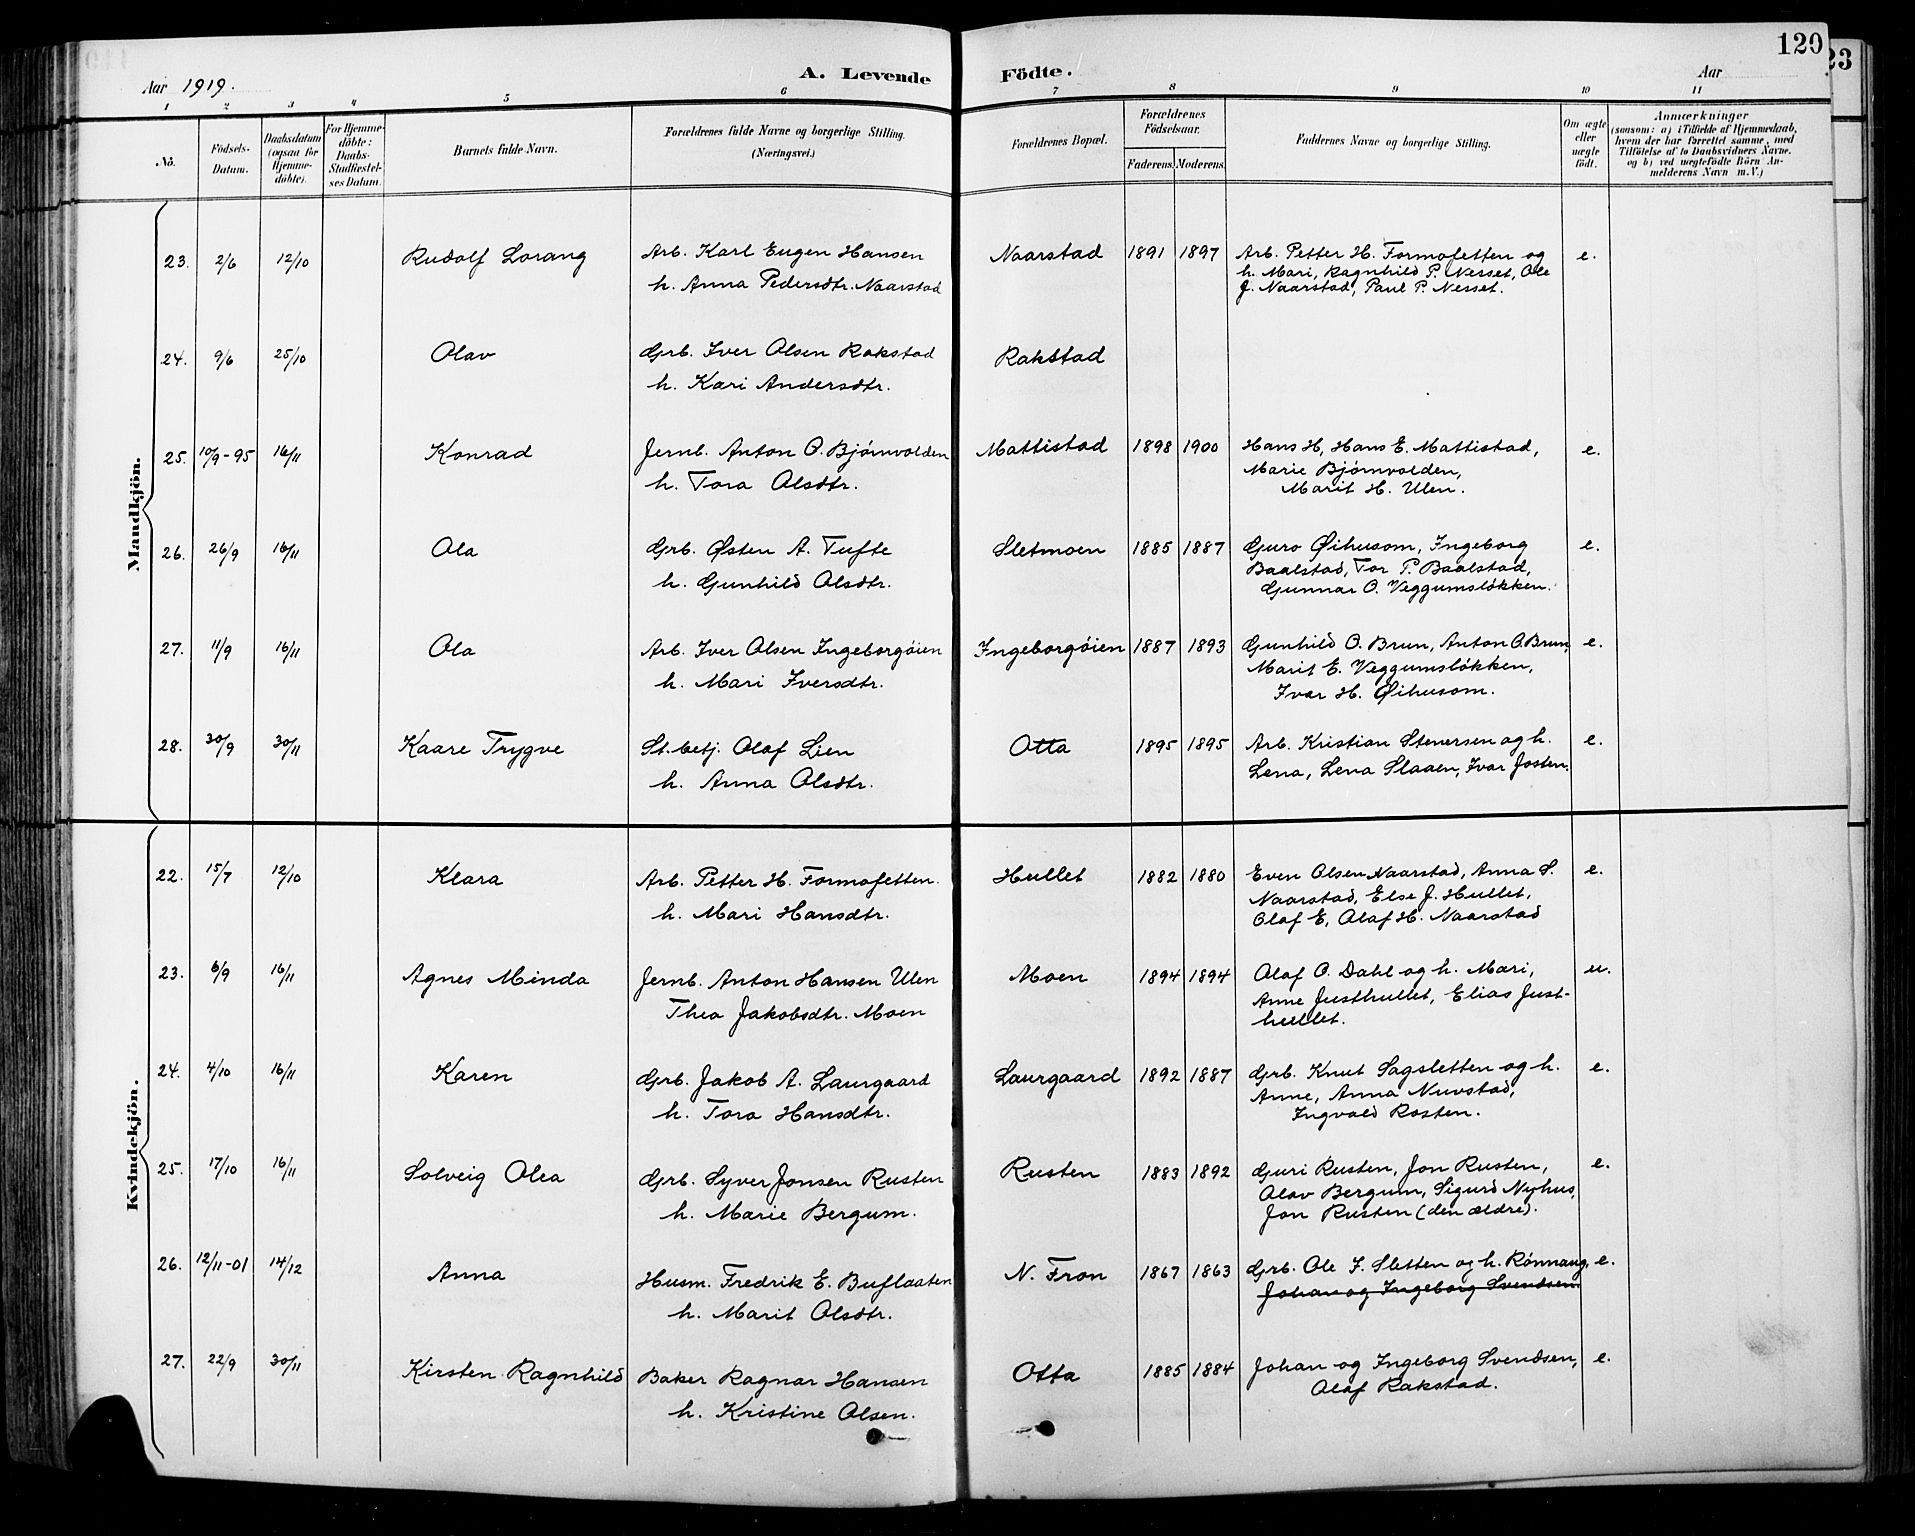 120
23
Aar 1919.
A. Levende Födte.
Aar
1 2 3 4 5 6 7 8 9 10 11
No.
Födsels-Datum.
Daabsdatum (ogsaa for Hjemme-döbte).
For Hjemme-döbte: Daabs-Stadfæstel-ses Datum.
Barnets fulde Navn.
Forældrenes fulde Navne og borgerlige Stilling.
(Næringsvei.)
Forældrenes Bopæl.
Forældrenes Födselsaar.
Faderens. Moderens.
Faddernes Navne og borgerlige Stilling.
Om ægte eller uægte födt.
Anmærkninger
(saasom: a) i Tilfælde af Hjemmedaab,
hvem der har forrettet samme, med
Tilföielse af to Daabsvidners Navne.
og b) ved uægtefödte Börn An-
melderens Navn m. V.)
Mandkjön.
23. 2/6 12/10 Rudolf Lorang Arb. Karl Eugen Hansen Naarstad 1891 1897 Arb. Petter H. Formofetten og e.
h. Anna Pedersdtr. Naarstad h. Mari, Ragnhild P. Nesset, Ole
J. Naarstad, Paul P. Nesset.
24. 9/6 25/10 Olav Grb. Iver Olsen Rakstad Rakstad
h. Kari Andersdtr.
25. 10/9-95 16/11 Konrad Jernb. Anton O. Bjørnvolden Mattistad 1898 1900 Hans H, Hans E. Mattistad, e.
h. Tora Olsdtr. Marie Bjørnvolden,
Marit H. Ulen.
26. 26/9 16/11 Ola Grb. Østen A. Tufte Sletmoen 1885 1887 Guro Øihusom, Ingeborg e.
h. Gunhild Olsdtr. Baalstad, Tor P. Baalstad,
Gunnar O. Veggumsløkken.
27. 11/9 16/11 Ola Arb. Iver Olsen Ingeborgøien Ingeborgøien 1887 1893 Gunhild O. Brun, Anton O. Brun, e.
h. Mari Iversdtr. Marit E. Veggumsløkken,
Ivar H. Øihusom.
28. 30/9 30/11 Kaare Trygve St.betj. Olaf Lien Otta 1895 1895 Arb. Kristian Stenersen og h. e.
h. Anna Olsdtr. Lena, Lena Slaaen, Ivar Josten.
Kvindekjön.
22. 15/7 12/10 Klara Arb. Petter H. Formofetten. Hullet 1882 1880 Even Olsen Naarstad, Anna S. e.
h. Mari Hansdtr. Naarstad, Else J. Hullet,
Olaf E, Olaf H. Naarstad
23. 6/9 16/11 Agnes Minda Jernb. Anton Hansen Ulen Moen 1894 1894 Olaf O. Dahl og h. Mari, u.
Thea Jakobsdtr. Moen Anne Justhullet, Elias Just-
hullet.
24. 4/10 16/11 Karen Grb. Jakob A. Laurgaard Laurgaard 1892 1887 Grb. Knut Sagsletten og h. e.
h. Tora Hansdtr. Anne, Anna Nuvstad,
Ingvald Rosten.
25. 17/10 16/11 Solveig Olea Grb. Syver Jonsen Rusten Rusten 1883 1892 Guri Rusten, Jon Rusten, e.
h. Marie Bergum. Olav Bergum, Sigurd Nyhus,
Jon Rusten (den ældre).
26. 12/11-01 14/12 Anna Husm. Fredrik E. Buflaaten N. Fron 1867 1863 Grb. Ole J. Sletten og h. Rønnaug, e.
h. Marit Olsdtr. Johan og Ingeborg Svendsen
27. 22/9 30/11 Kirsten Ragnhild Baker Ragnar Hansen Otta 1885 1884 Johan og Ingeborg Svendsen, e.
h. Kristine Olsen. Olaf Rakstad.